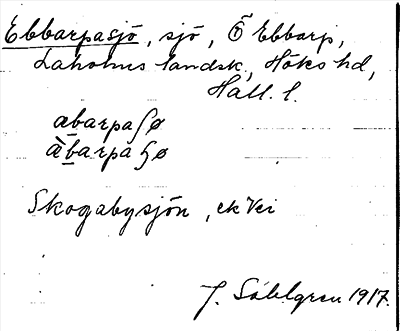 Ebbarpasjö, sjö, Ö Ebbarp,
Laholms landsk., Höks hd,
Hall. l.
abarpaʃø
àbarpa ɧø
Skogabysjön, ek Vei
J. Sahlgren 1917.